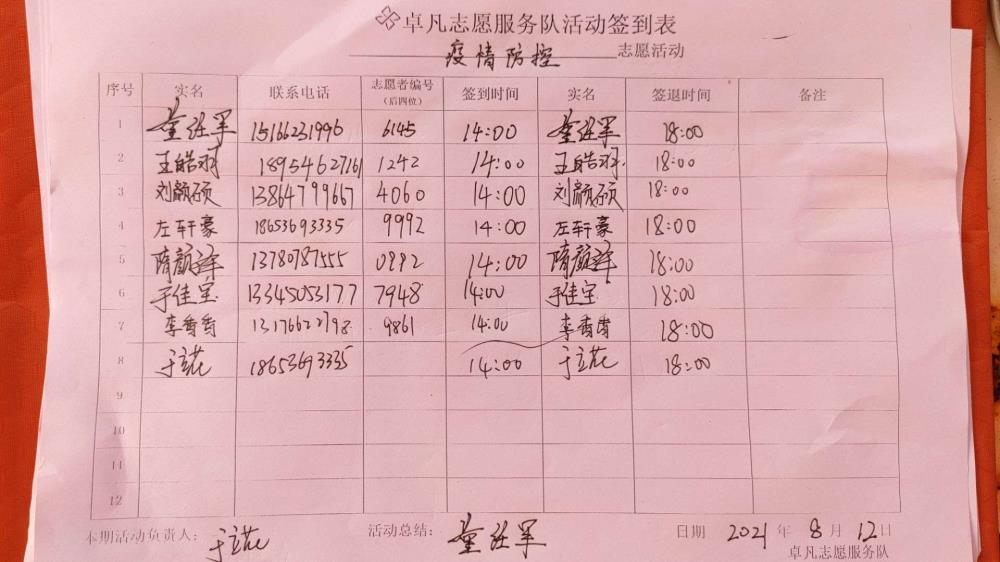 卓凡志愿服务队活动签到表
疫情防控 志愿活动
序号 实名 联系电话 志愿者编号 (后四位) 签到时间 实名 签退时间 备注
1 15166231996 6145 14:00 18:00
2 王皓羽 18954627161 1242 14:00 王皓羽 18:00
3 刘颜硕 13864799667 4060 14:00 刘颜硕 18:00
4 左轩豪 18653693335 9992 14:00 左轩豪 18:00
5 隋颜泽 13780787555 0992 14:00 隋颜泽 18:00
6 于佳宝 13345053177 7948 14:00 于佳宝 18:00
7 李香香 13176622798 9861 14:00 李香香 18:00
8 于立花 18653693335 14:00 于立花 18:00
9
10
11
12
本期活动负责人: 于立花 活动总结: 日期 2021 年 8 月 12 日
卓凡志愿服务队